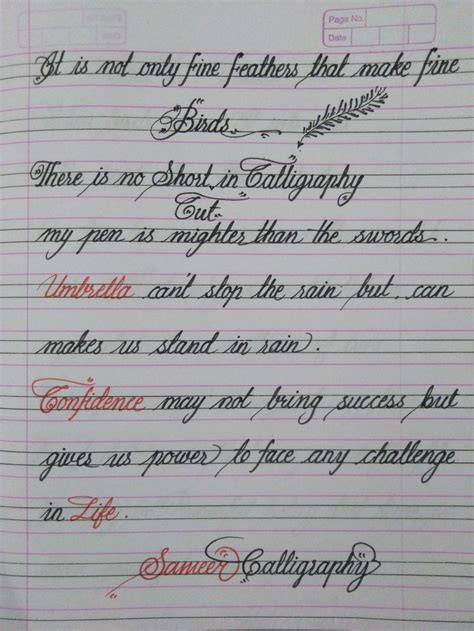 Page No.
Date
It is not only fine feathers that make fine
Birds.
There is no Short in Calligraphy
Cut
my pen is mighter than the swords..
Umbrella can't stop the rain but. can
makes us stand in rain.
Confidence may not bring success but
gives us power to face any challenge
in Life.
Sameer Calligraphy